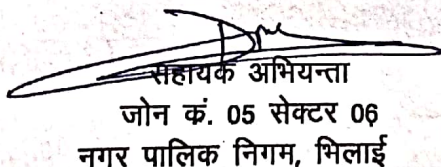 सहायक अभियन्ता
जोन कं. 05 सेक्टर 06
नगर पालिक निगम, भिलाई